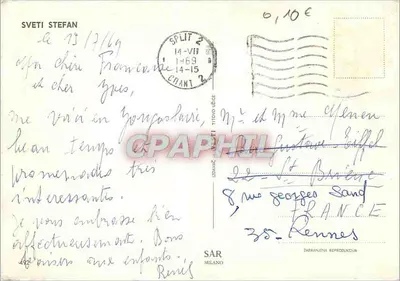 SVETI STEFAN
0,10€
le 13/7/69
SPLIT 2
14-VII
1969
14-15
Ma chère Francoise
et cher Yves,
me voici en Yougoslavie,
beau temps et
promenades très
intéressantes.
Je vous embrasse bien
affectueusement. Bons
baisers aux enfants.
Renée
CPAPHIL.com
Mr et Mme
Gustave Eiffel
22 - St Brieuc
8 rue georges Sand
FRANCE
35 - Rennes
SAR
MILANO